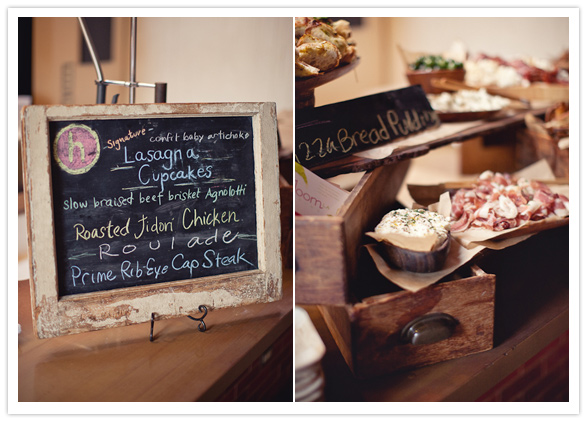 h
Signature - confit baby artichoke
Lasagna
Cupcakes
slow braised beef brisket Agnolotti
Roasted Jidori Chicken
Roulade
Prime Rib Eye Cap Steak
zza Bread Pudd
room